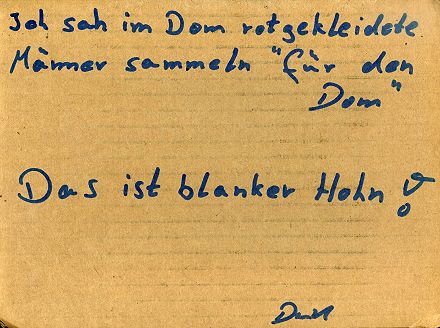 Ich sah im Dom rotgekleidete
Männer sammeln "für den
Dom"
Das ist blanker Hohn!